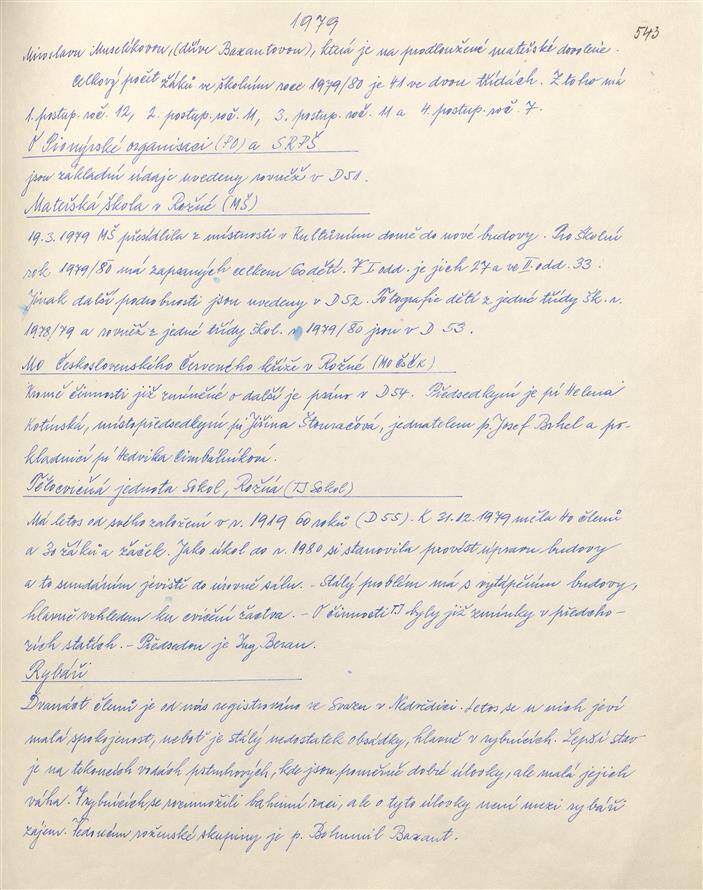 1979
543
Miroslavu Muselíkovou, (dříve Baxantovou), která je na prodloužené mateřské dovolené.
Celkový počet žáků ve školním roce 1979/80 je 41 ve dvou třídách. Z toho má
1. postup. roč. 12, 2. postup. roč. 11, 3. postup. roč. 11 a 4. postup. roč. 7.
O Pionýrské organisaci (PO) a SRPŠ
jsou základní údaje uvedeny rovněž v D 51.
Mateřská škola v Rožné (MŠ)
19.3.1979 MŠ přesídlila z místností v Kulturním domě do nové budovy. Pro školní
rok 1979/80 má zapsaných celkem 60 dětí. V I odd. je jich 27 a ve II. odd. 33.
Jinak další podrobnosti jsou uvedeny v D 52. Fotografie dětí z jedné třídy šk. r.
1978/79 a rovněž z jedné třídy škol. r. 1979/80 jsou v D 53.
MO Československého Červeného kříže v Rožné (MO ČSČK)
Kromě činnosti již zmíněné o další je psáno v D 54. Předsedkyní je pí Helena
Kotinská, místopředsedkyní pí Jiřina Štouračová, jednatelem p. Josef Brhel a po-
kladnicí pí Hedvika Cimbálníková.
Tělocvičná jednota Sokol, Rožná (TJ Sokol)
Má letos od svého založení v r. 1919 60 roků (D 55). K 31.12.1979 měla 40 členů
a 30 žáků a žaček. Jako úkol do r. 1980 si stanovila provést úpravu budovy
a to sundáním jeviště do úrovně sálu. - Stálý problém má s vytápěním budovy,
hlavně vzhledem ku cvičení žactva. - O činnosti TJ byly již zmínky v předcho-
zích statích. - Předsedou je Ing. Beran.
Rybáři
Dvanáct členů je od nás registrováno ve Svazu v Nedvědici. Letos se u nich jeví
malá spokojenost, neboť je stálý nedostatek obsádky, hlavně v rybnících. Lepší stav
je na tekoucích vodách pstruhových, kde jsou poměrně dobré úlovky, ale malá jejich
váha. V rybnících se rozmnožili bahenní raci, ale o tyto úlovky není mezi rybáři
zájem. Vedoucím roženské skupiny je p. Bohumil Baxant.